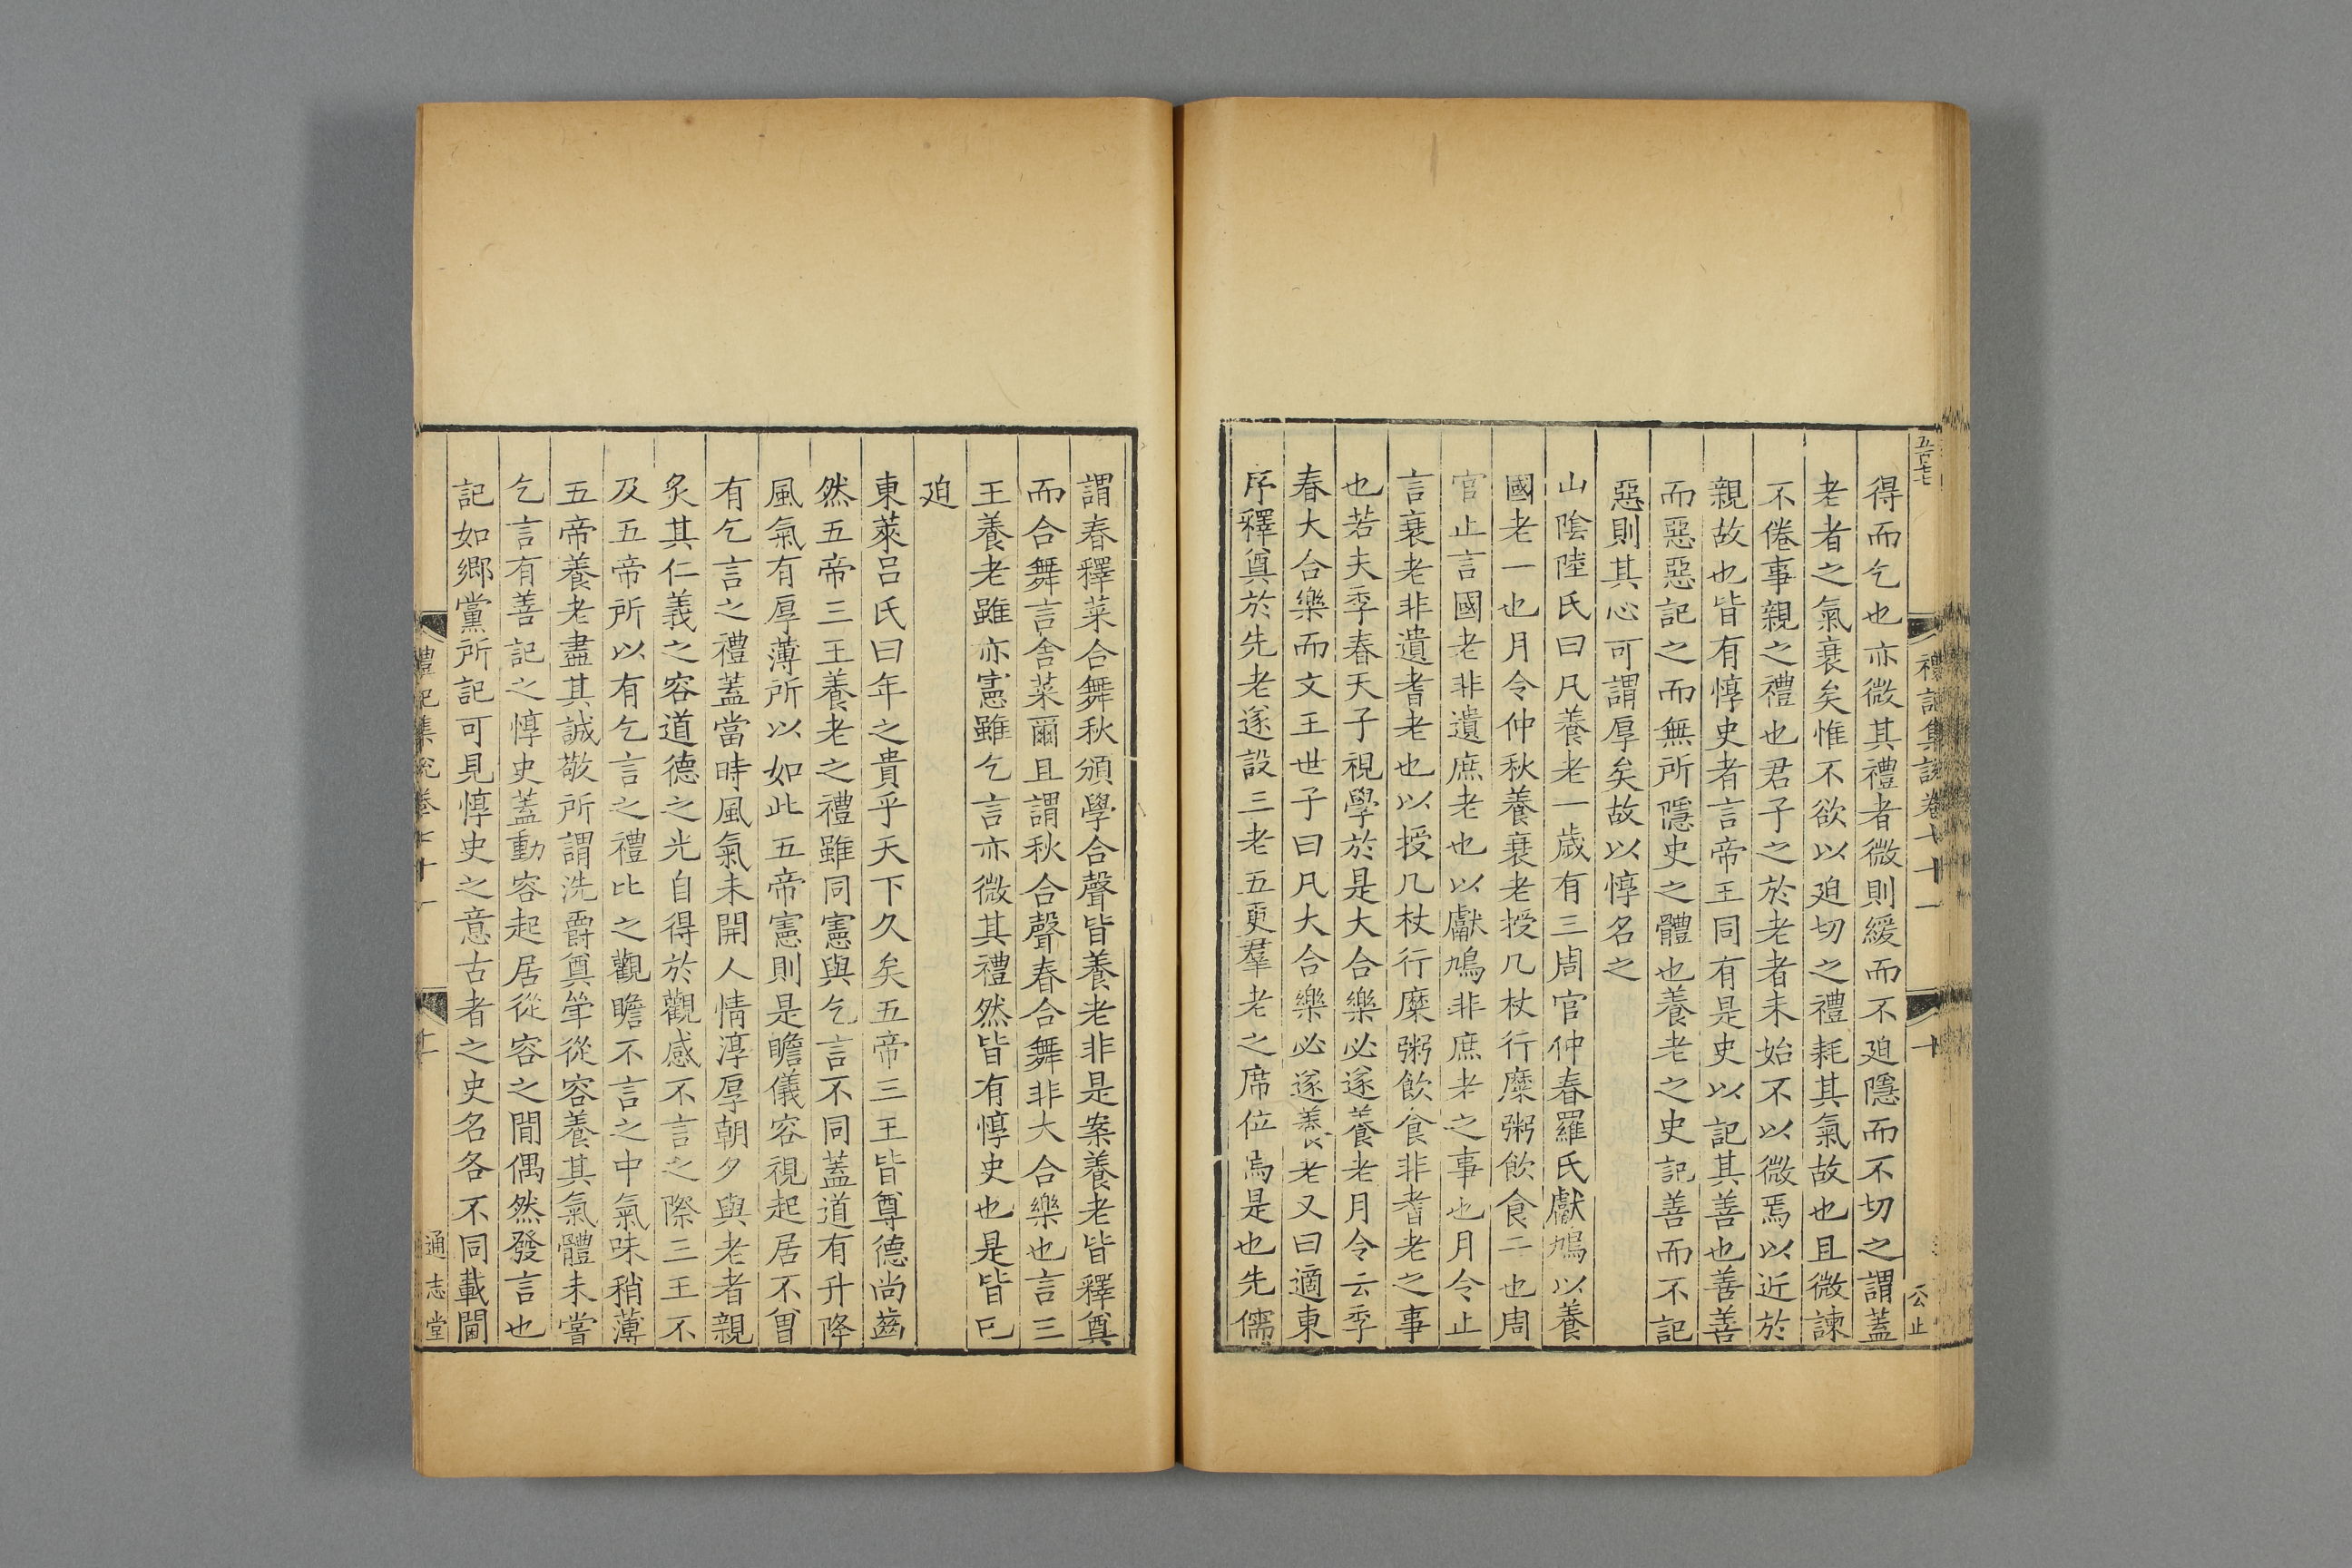 五百七
禮記集說卷七十一
十
公止
得而乞也亦微其禮者微則緩而不廹隱而不切之謂蓋
老者之氣衰矣惟不欲以廹切之禮耗其氣故也且微諫
不倦事親之禮也君子之於老者未始不以微焉以近於
親故也皆有惇史者言帝王同有是史以記其善也善善
而惡惡記之而無所隱史之體也養老之史記善而不記
惡則其心可謂厚矣故以惇名之
山陰陸氏曰凡養老一歲有三周官仲春羅氏獻鳩以養
國老一也月令仲秋養衰老授几杖行糜粥飲食二也周
官止言國老非遺庶老也以獻鳩非庶老之事也月令止
言衰老非遺耆老也以授几杖行糜粥飲食非耆老之事
也若夫季春天子視學於是大合樂必遂養老月令云季
春大合樂而文王世子曰凡大合樂必遂養老又曰適東
序釋奠於先老遂設三老五更羣老之席位焉是也先儒
謂春釋菜合舞秋頒學合聲皆養老非是案養老皆釋奠
而合舞言舍菜爾且謂秋合聲春合舞非大合樂也言三
王養老雖亦憲雖乞言亦微其禮然皆有惇史也是皆已
廹
東萊呂氏曰年之貴乎天下久矣五帝三王皆尊德尚齒
然五帝三王養老之禮雖同憲與乞言不同蓋道有升降
風氣有厚薄所以如此五帝憲則是瞻儀容視起居不曽
有乞言之禮蓋當時風氣未開人情淳厚朝夕與老者親
炙其仁義之容道德之光自得於觀感不言之際三王不
及五帝所以有乞言之禮比之觀瞻不言之中氣味稍薄
五帝養老盡其誠敬所謂洗爵奠斚從容養其氣體未嘗
乞言有善記之惇史蓋動容起居從容之間偶然發言也
記如鄉黨所記可見惇史之意古者之史名各不同載閫
禮記集說卷七十一
十一
通志堂